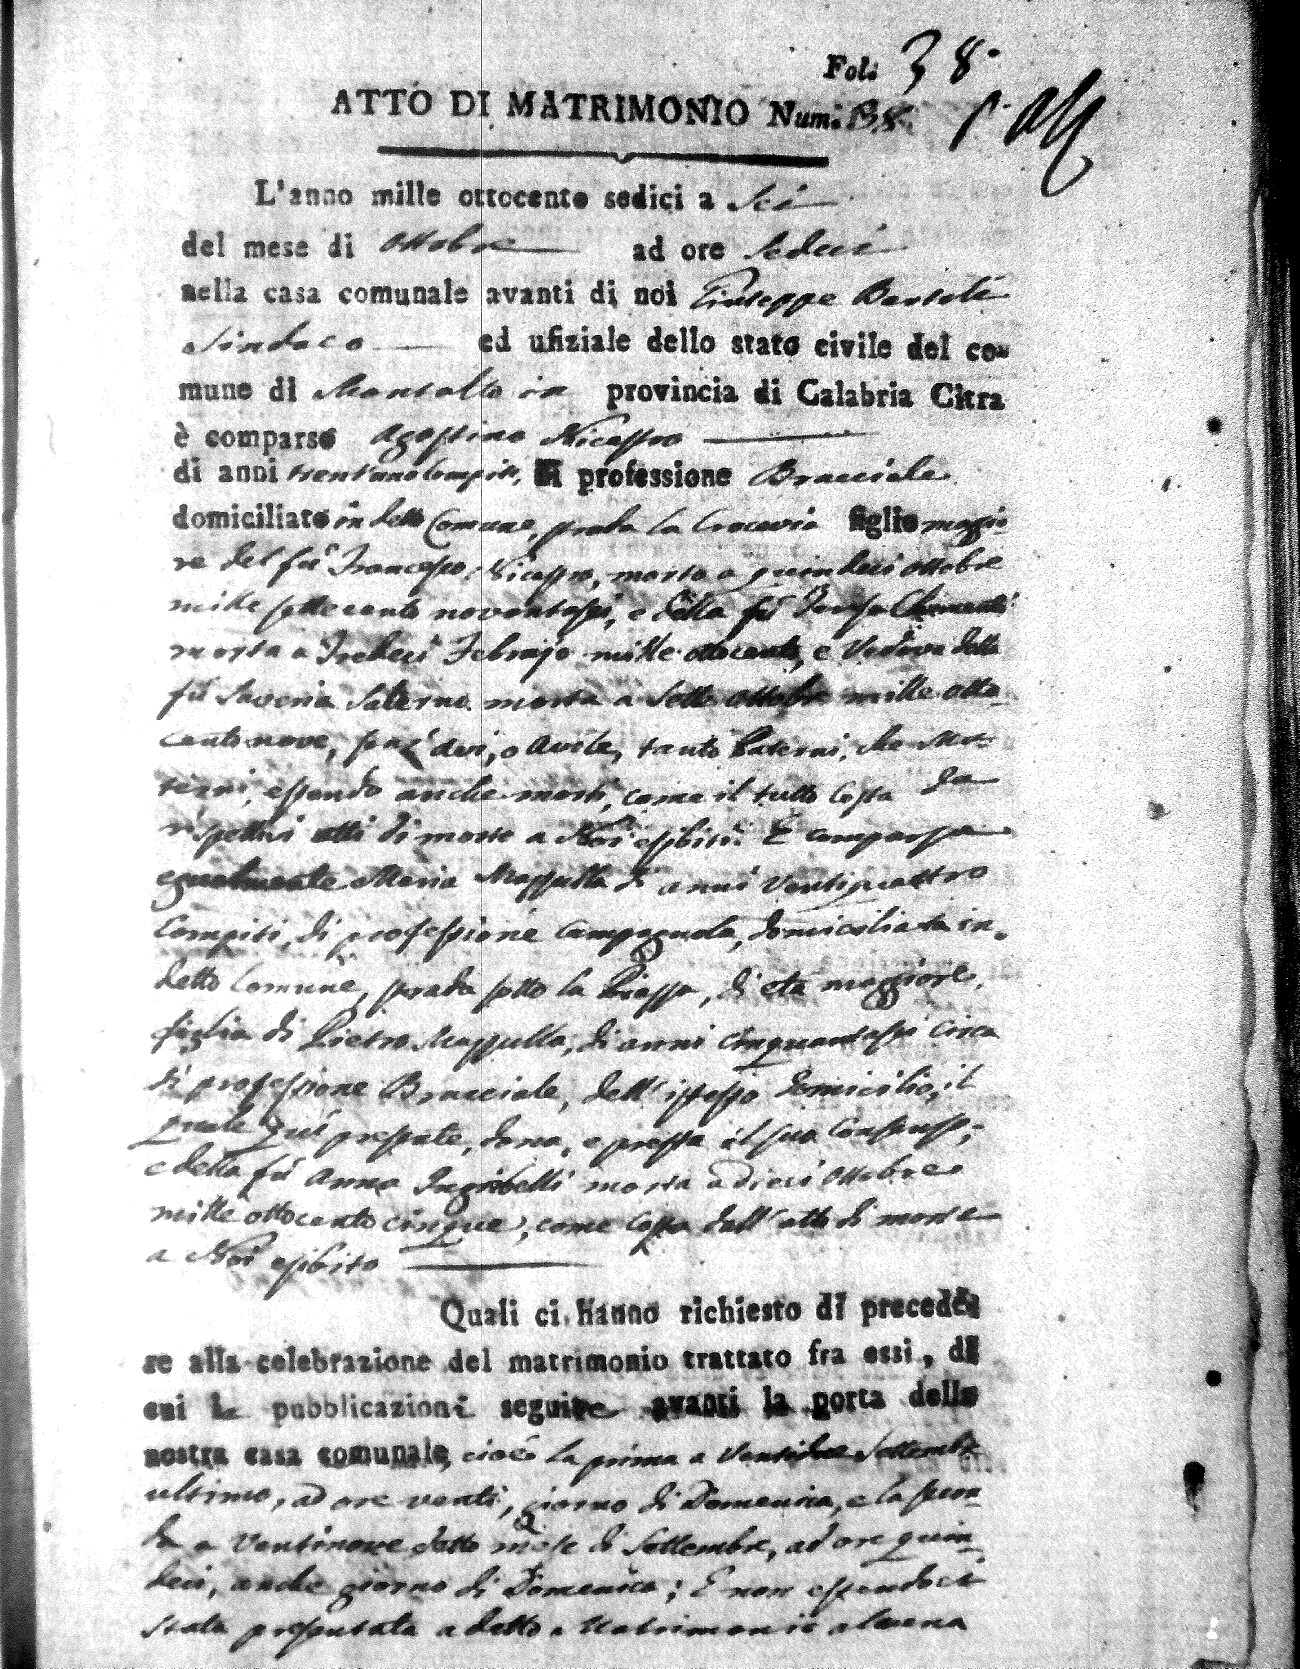 Fol: 38.
ATTO DI MATRIMONIO Num: 38.
L'anno mille ottocento sedici a Sei
del mese di Ottobre ad ore Sedeci
nella casa comunale avanti di noi Giuseppe
Sindaco ed ufiziale dello stato civile del co-
mune di Montalto in provincia di Calabria Citra
è comparso Agostino Nicastro
di anni trentuno compiti, di professione Bracciale
domiciliato in detto Comune, strada la Crocevia figlio maggio-
re del fù Francesco Nicastro, morto a quindeci ottobre
mille settecento novantasei, e della fù Teresa
morta a Tredeci Febrajo mille ottocento, e Vedovo della
fù Saveria Salerno morta a Sette Ottobre mille otto-
cento nove, senz' avi, o Avole, tanto Paterni, che Ma-
terni, essendo anche morti, come il tutto costa da
rispettivi atti di morte a Noi esibiti. E comparsa
egualmente Maria Mazzulla di anni Ventiquattro
Compiti, di professione Campagnola, domiciliata in
detto Comune, strada sotto la Piazza, di età maggiore,
figlia di Pietro Mazzulla, di anni cinquantasei circa
di professione Bracciale, dell' istesso domicilio, il
quale quì presente, dona, e presta il suo Consenso;
e della fù Anna morta a dieci Ottobre
mille ottocento cinque, come costa dall' atto di morte
a Noi esibito
Quali ci hanno richiesto di precede-
re alla celebrazione del matrimonio trattato fra essi, di
cui le pubblicazioni seguite avanti la porta della
nostra casa comunale, cioè la prima a Ventidue Settembre
ultimo, ad ore venti, giorno di Domenica, e la secon-
da a Ventinove detto mese di Settembre, ad ore quin-
deci, anche giorno di Domenica; E non essendoci
stata presentata a detto Matrimonio alcuna